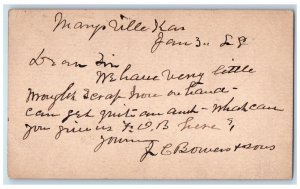 Marysville Kas
Jan 3
Dear Sir
We have very little
wrought Scrap Iron on hand -
can get quite an amt - what can
you give us F. O. B here ?
Yours
J C Bowers & Sons